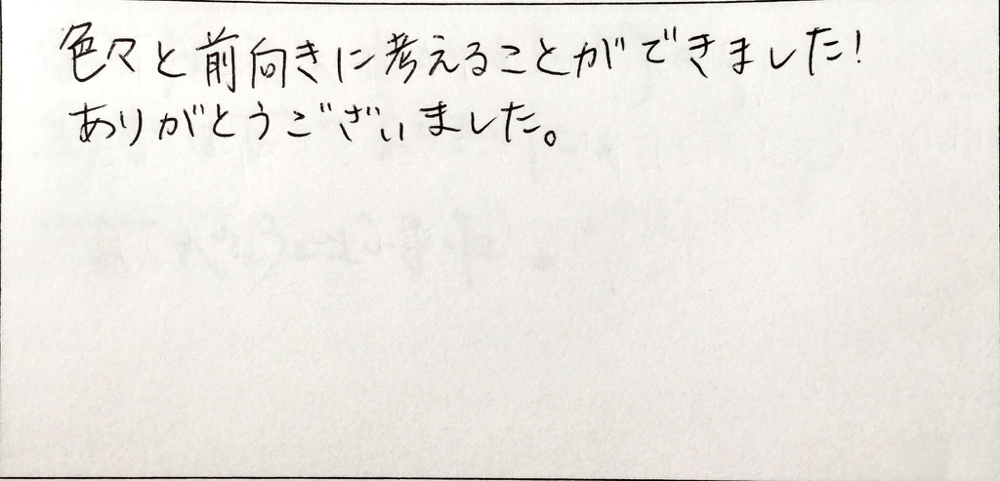 色々と前向きに考えることができました!
ありがとうございました。